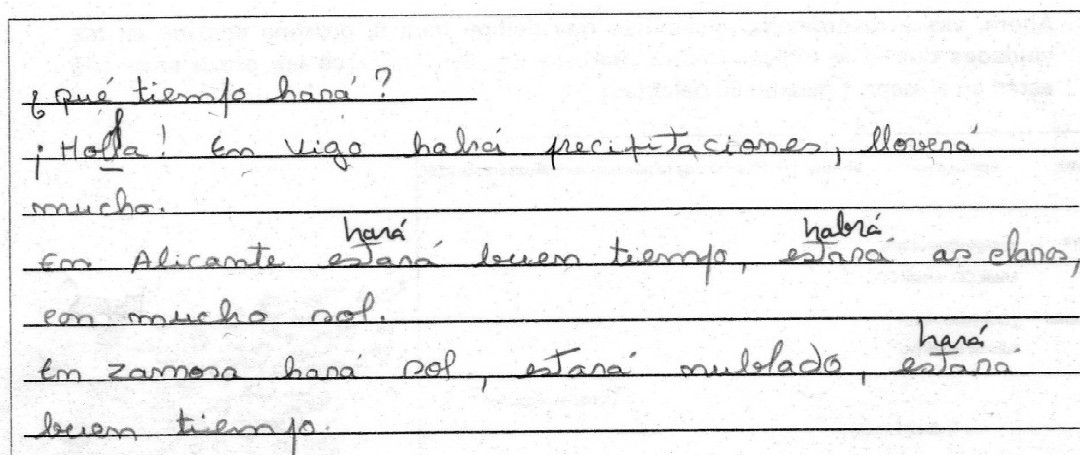 ¿ qué tiempo hará ?
¡ Holla ! En Vigo habrá precipitaciones, lloverá
mucho.
hará habrá
En Alicante estará buen tiempo, estará as claros,
con mucho sol.
hará
En Zamora hará sol, estará nublado, estará
buen tiempo.